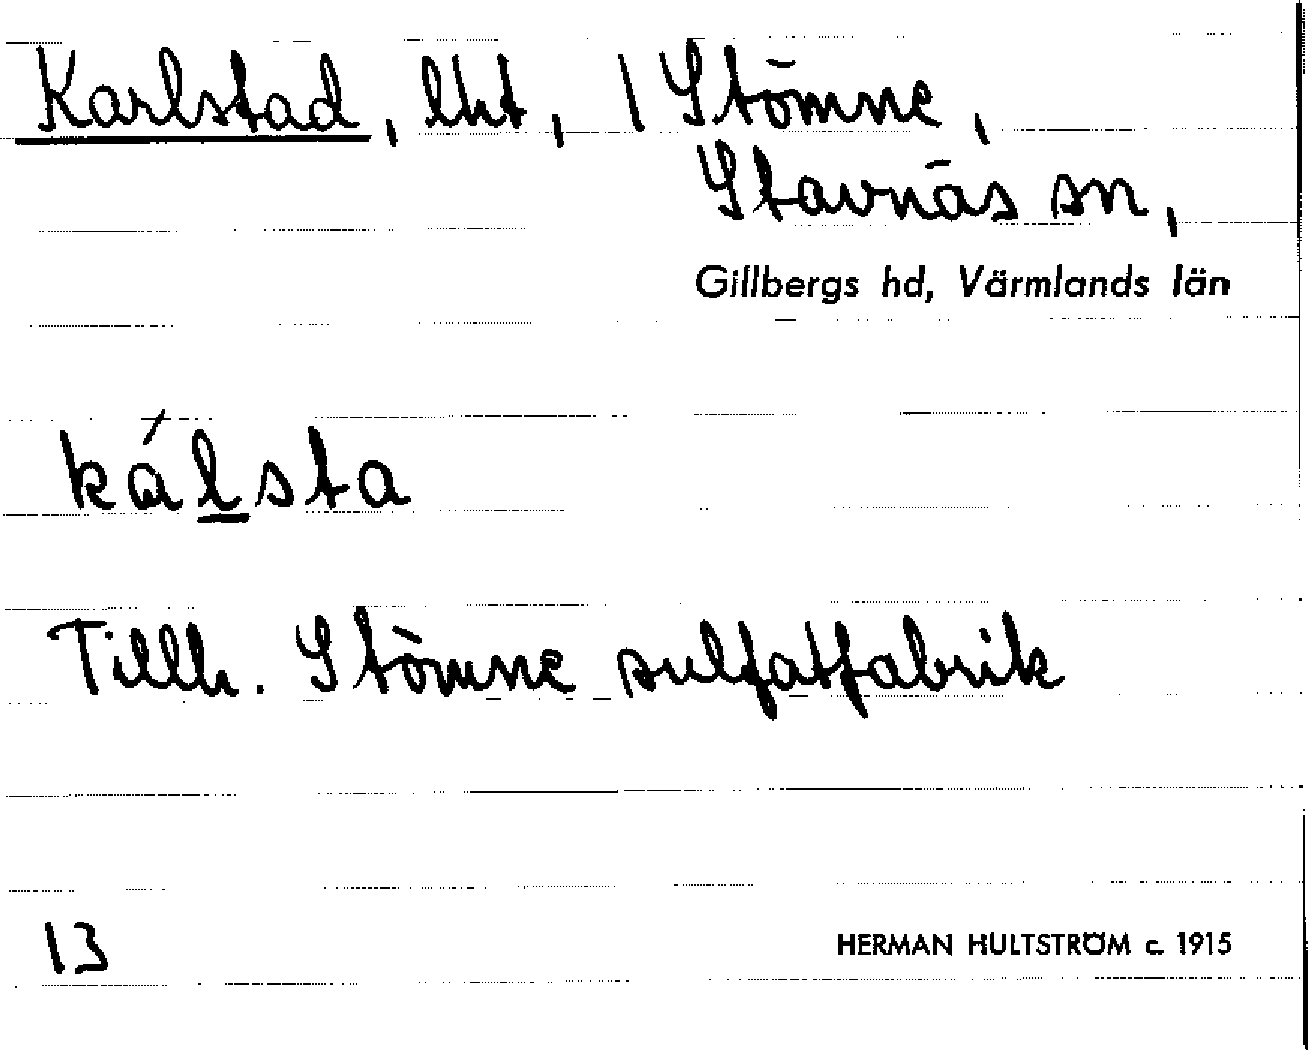 Karlstad, lht, 1 Stömne,
Stavnäs sn,
Gillbergs hd, Värmlands län
kálsta
Tillh. Stömne sulfatfabrik
13 HERMAN HULTSTRÖM c. 1915